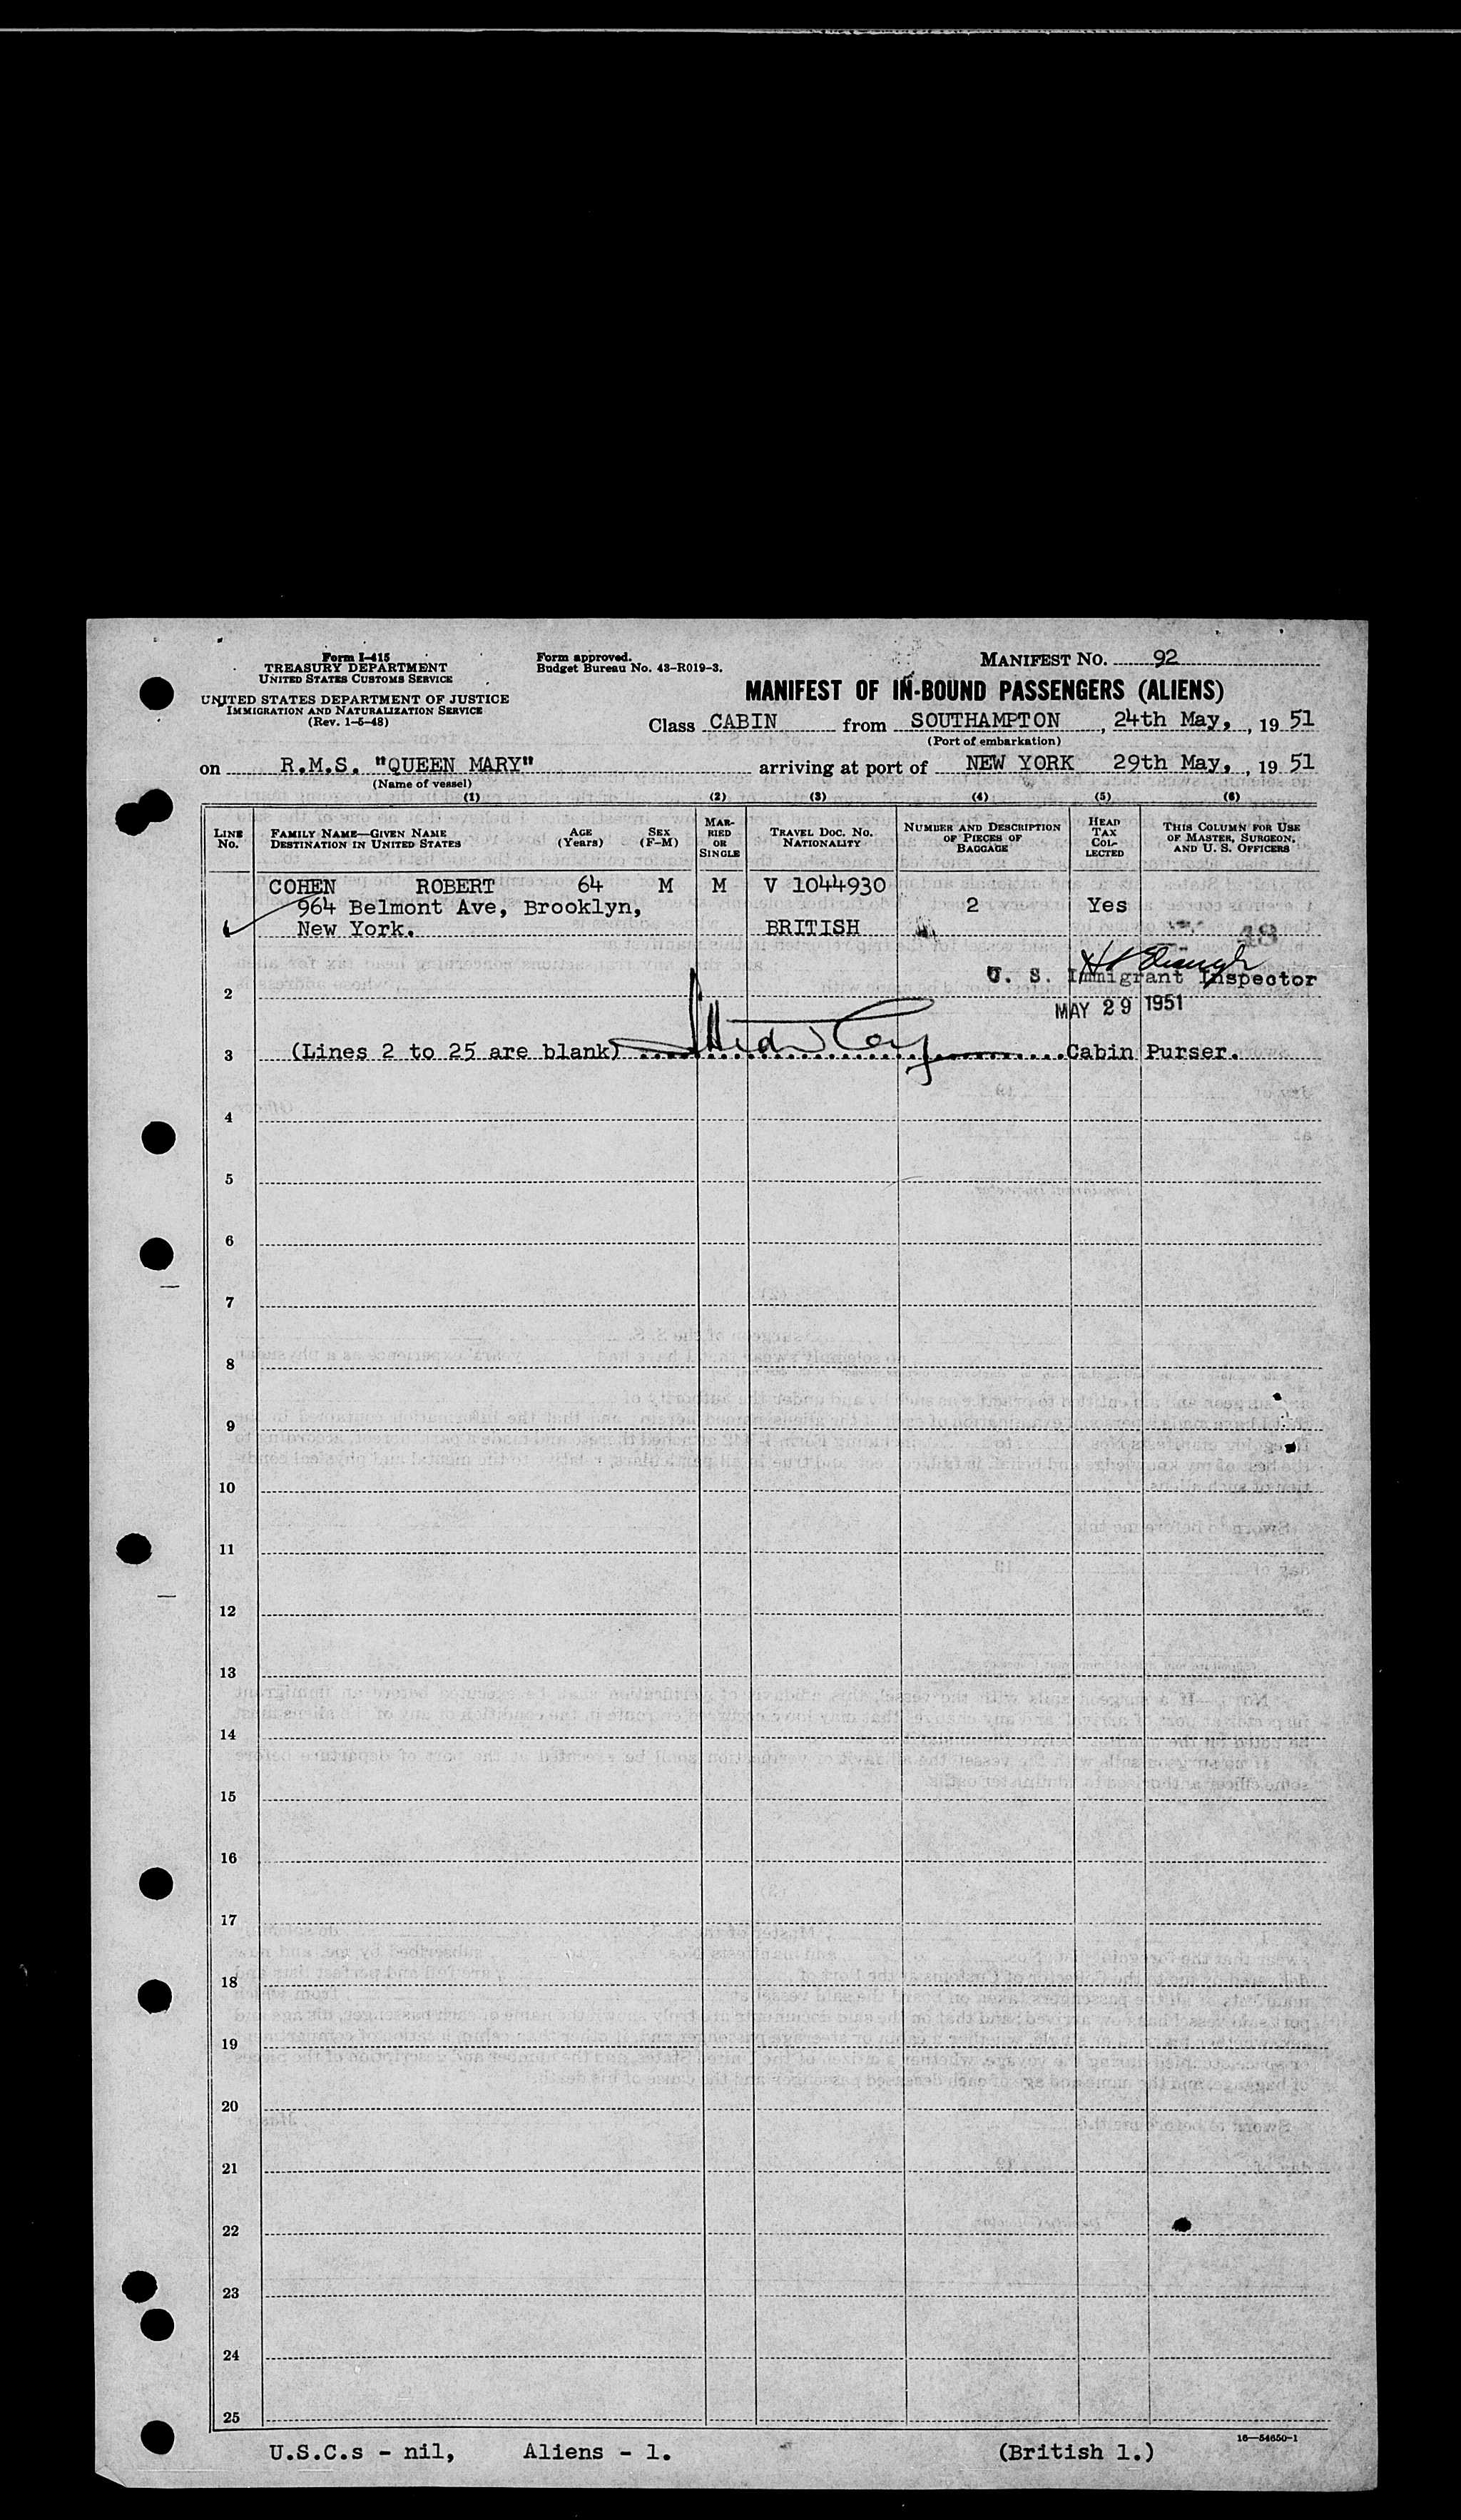 Form I-415
TREASURY DEPARTMENT
UNITED STATES CUSTOMS SERVICE
UNITED STATES DEPARTMENT OF JUSTICE
IMMIGRATION AND NATURALIZATION SERVICE
(Rev. 1-5-48)
Form approved.
Budget Bureau No. 43-R019-3.
MANIFEST NO. 92
MANIFEST OF IN-BOUND PASSENGERS (ALIENS)
Class CABIN from SOUTHAMPTON, 24th May, , 19 51
(Port of embarkation)
on R.M.S. "QUEEN MARY" arriving at port of NEW YORK 29th May, , 19 51
(Name of vessel)
(1) (2) (3) (4) (5) (6)
LINE No.
FAMILY NAME—GIVEN NAME
DESTINATION IN UNITED STATES
AGE (Years)
SEX (F-M)
MARRIED OR SINGLE
TRAVEL DOC. NO.
NATIONALITY
NUMBER AND DESCRIPTION OF PIECES OF BAGGAGE
HEAD TAX COLLECTED
THIS COLUMN FOR USE OF MASTER, SURGEON, AND U. S. OFFICERS
COHEN ROBERT 64 M M V 1044930
964 Belmont Ave, Brooklyn, 2 Yes
New York. BRITISH 48
U. S. Immigrant Inspector
2
MAY 29 1951
3 (Lines 2 to 25 are blank) Cabin Purser.
4
5
6
7
8
9
10
11
12
13
14
15
16
17
18
19
20
21
22
23
24
25
16—54650-1
U.S.C.s - nil, Aliens - 1. (British 1.)